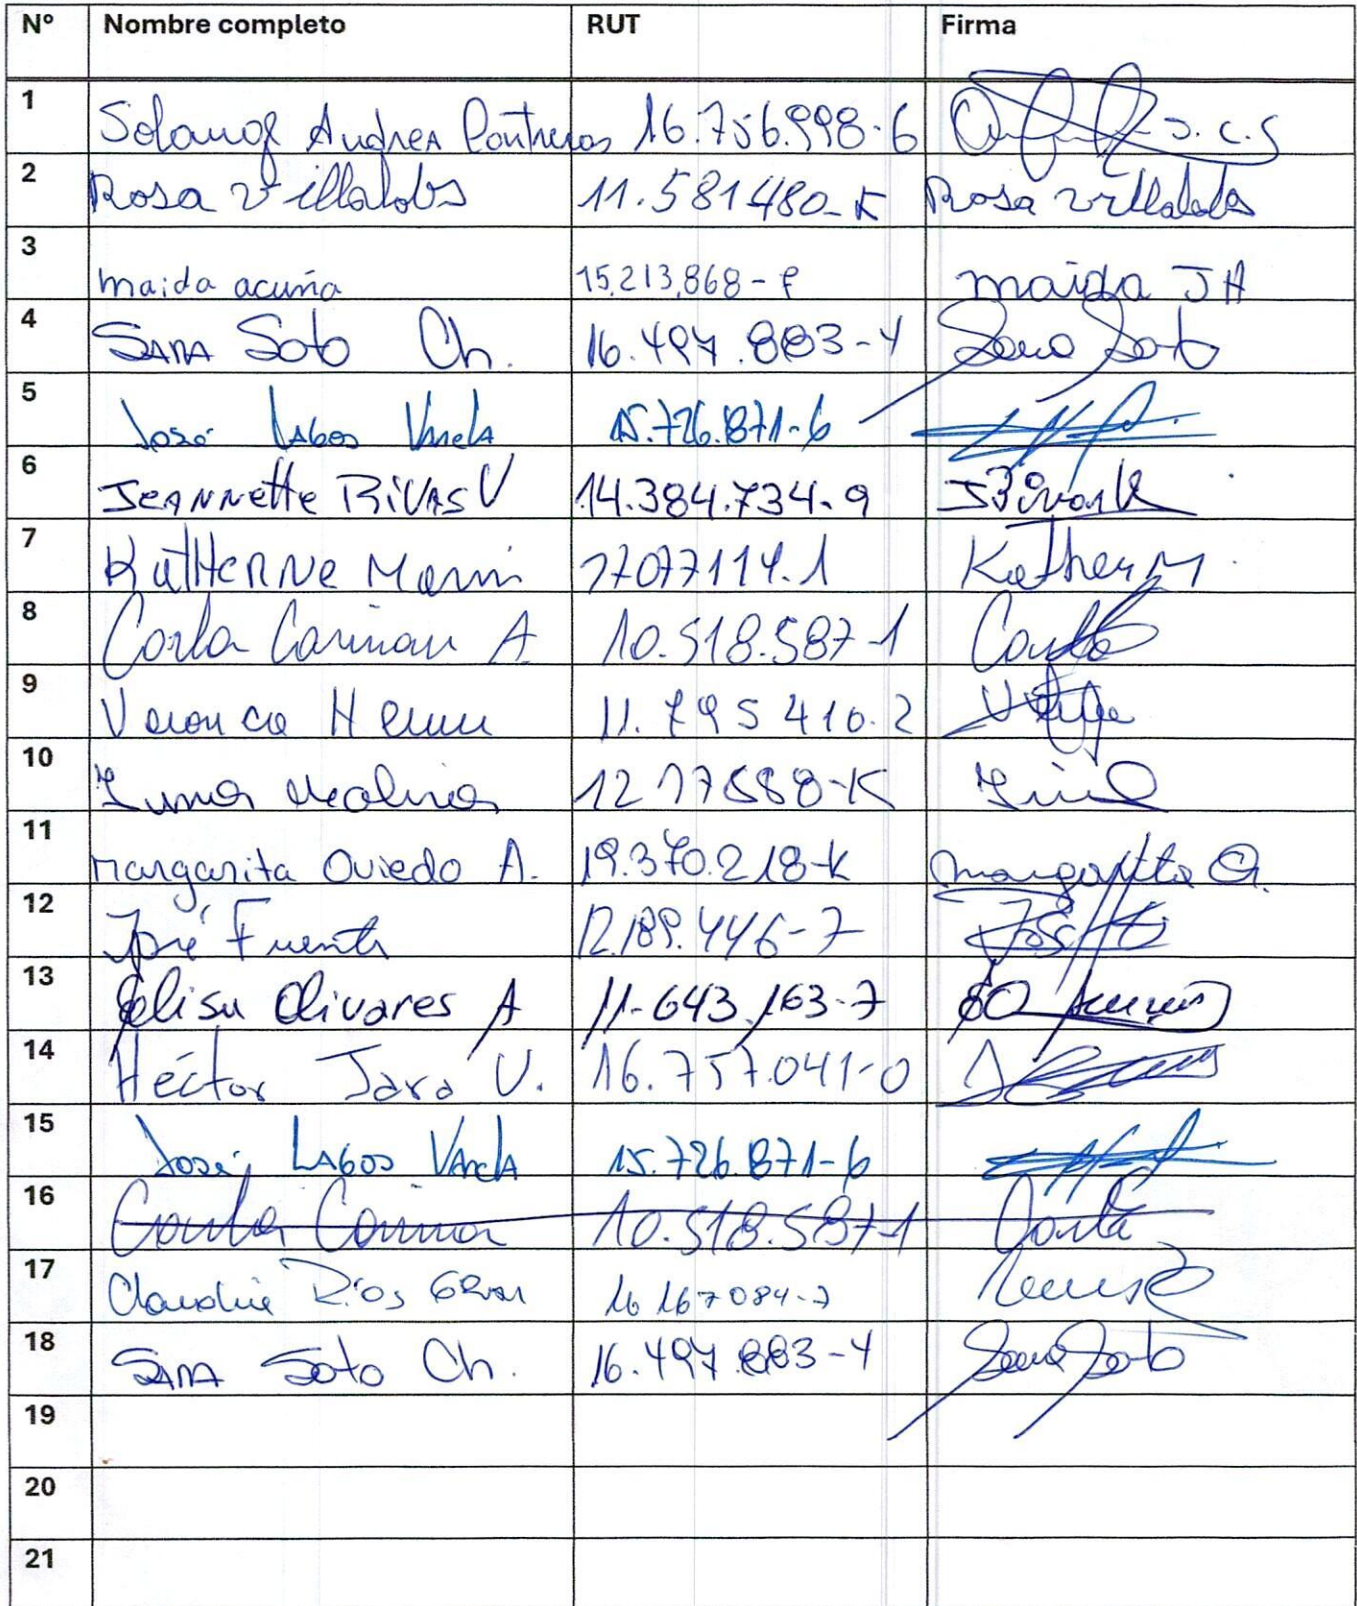 Nº Nombre completo RUT Firma
1 Solange Andrea Contreras 16.756.998-6 J.C.S
2 Rosa Villalobs 11.581480-K Rosa Villalobs
3 maida acuña 15,213,868-8 maida JA
4 SARA Soto Ch. 16.497.883-4 Sara Soto
5 José LAGOS Varela 15.726.871-6
6 JEANNette RiVAS V 14.384.734-9 JRivasV
7 KatHerine Marin 17077114.1 Kather M
8 Carla Cariman A 10.518.587-1 Carla
9 Veronica 11.795410-2
10 Molina 12 17588-K
11 Margarita Oviedo A. 19.370.218-K Margarita O.
12 José Fuents 12.189.446-7 José
13 Elisa Olivares A 11-643.163-7 EO
14 Héctor Jara V. 16.757.041-0
15 José LAGOS Varela 15.726.871-6
16 Carla Carima 10.518.587-1 Carla
17 Claudia Ríos 16 167084-7
18 SARA Soto Ch. 16.497.883-4 Sara Soto
19
20
21